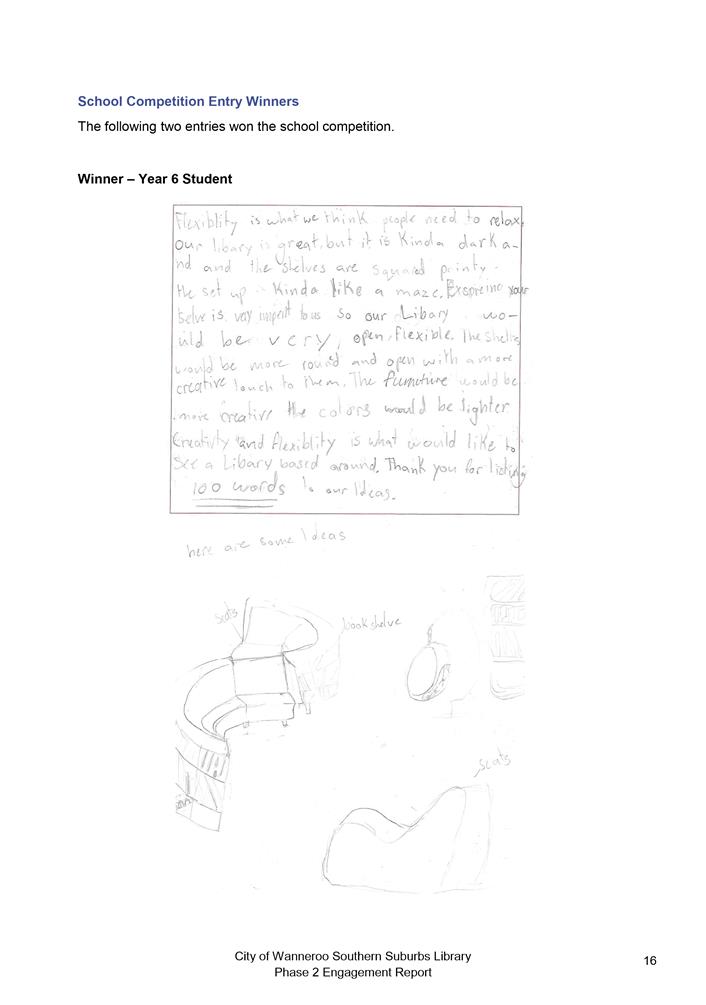 School Competition Entry Winners
The following two entries won the school competition.
Winner – Year 6 Student
Flexiblity is what we think people need to relax.
Our libary is great, but it is Kinda dark a-
nd and the shelves are squard pointy.
the set up Kinda like a maze. your
selve is very to us so our Libary wo-
uld be very, open, flexible. The
would be more round and open with a more
creative touch to them. The furniture would be
more creative the colors would be lighter
Creativity and flexiblity is what would like to
see a Libary based around. Thank you for
100 words to our Ideas.
here are some Ideas
seats
bookshelve
seats
City of Wanneroo Southern Suburbs Library
Phase 2 Engagement Report
16